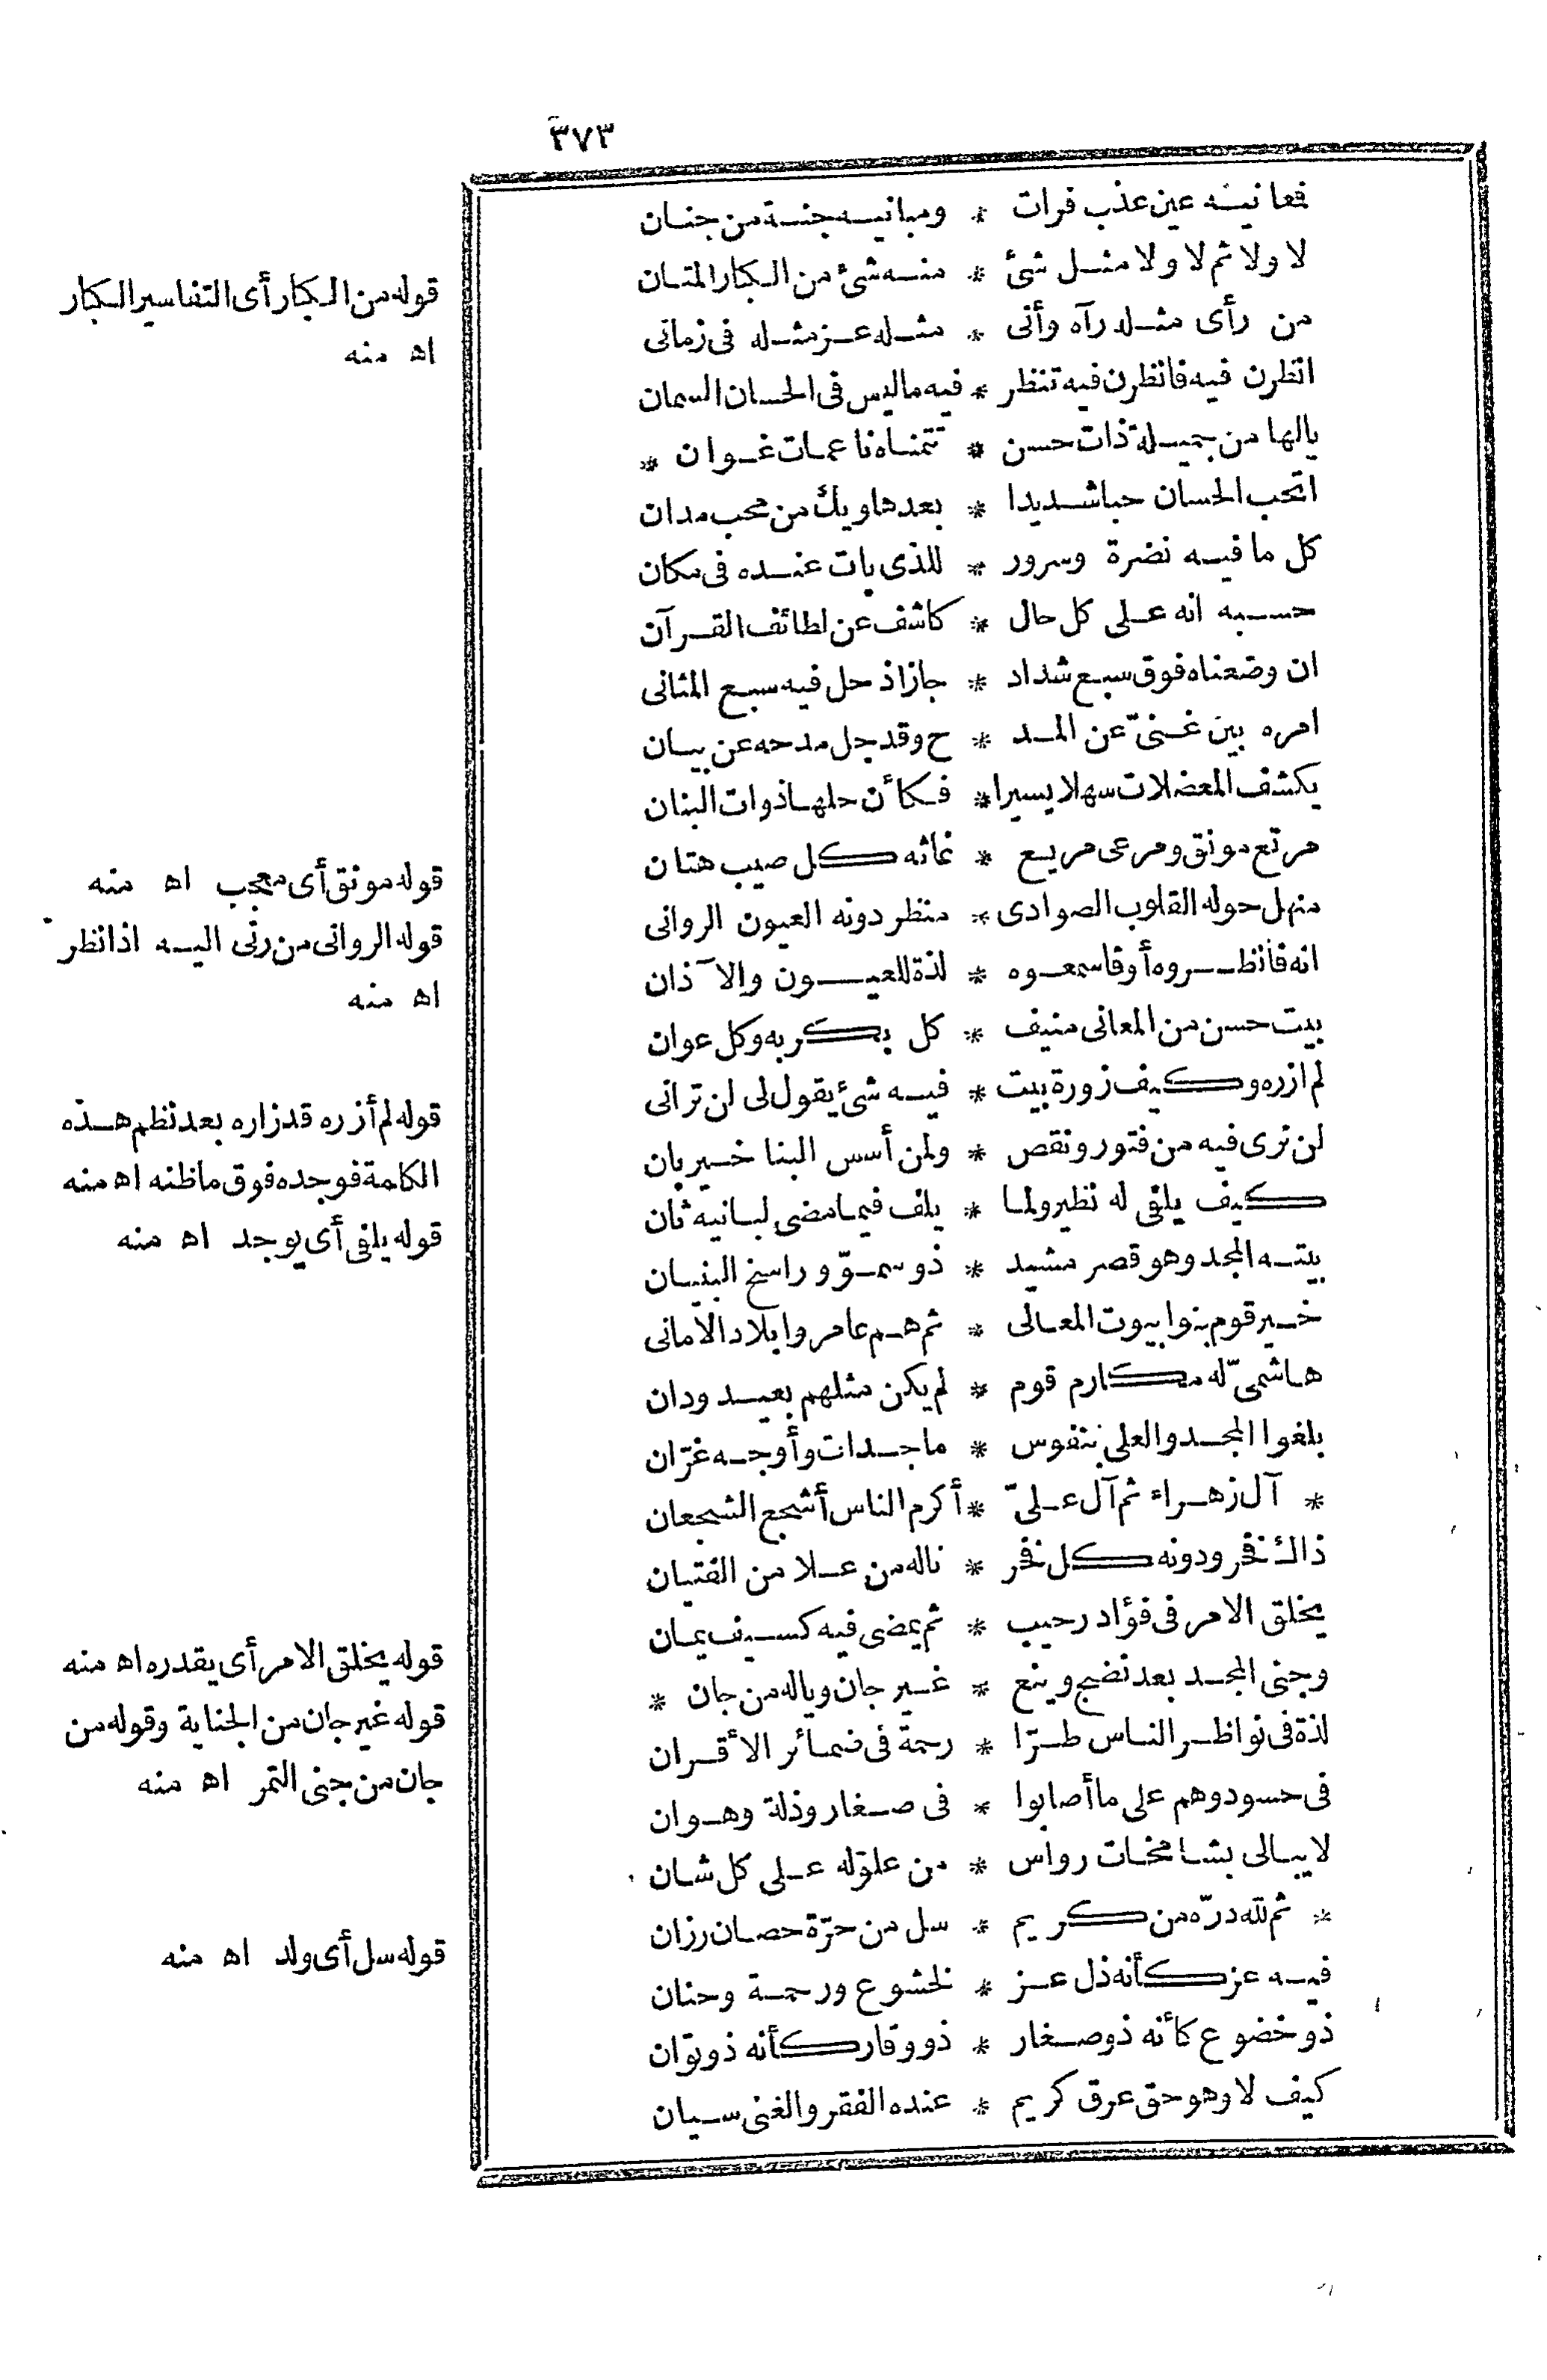 ٣٧٣
فعانيه عين عذب فرات * ومبانيه جنة من جنان
لا ولا ثم لا ولا مثل شئ * منه شئ من الكبار المتان
من رأى مثله رآه وأنى * مثله عز مثله فى زمانى
انظرن فيه فانظرن فيه تنظر * فيه ماليس فى الحسان السمان
يالها من جميلة ذات حسن * تتمناه ناعمات غوان *
اتحب الحسان حبا شديدا * بعدها ويك من محب مدان
كل ما فيه نضرة وسرور * للذى بات عنده فى مكان
حسبه انه على كل حال * كاشف عن لطائف القرآن
ان وضعناه فوق سبع شداد * جاز اذ حل فيه سبع المثانى
امره بين غنىّ عن المد * ح وقد جل مدحه عن بيان
يكشف المعضلات سهلا يسيرا * فكأن حلها ذوات البنان
مرتع مونق ومرعى مريع * غاثه كل صيب هتان
منهل حوله القلوب الصوادى * منظر دونه العيون الروانى
انه فانظروه أوفاسمعوه * لذة للعيون والآذان
بيت حسن من المعانى منيف * كل بكر به وكل عوان
لم ازره وكيف زورة بيت * فيه شئ يقول لى لن ترانى
لن ترى فيه من فتور ونقص * ولمن أسس البنا خير بان
كيف يلفى له نظير ولما * يلف فيما مضى لبانيه ثان
بيته المجد وهو قصر مشيد * ذو سموّ وراسخ البنيان
خير قوم بنوا بيوت المعالى * ثم هم عامروا بلاد الأمانى
هاشمىّ له مكارم قوم * لم يكن مثلهم بعيد ودان
بلغوا المجد والعلى بنفوس * ماجدات وأوجه غرّان
* آل زهراء ثم آل علىّ * أكرم الناس أشجع الشجعان
ذاك فخر ودونه كل فخر * ناله من علا من الفتيان
يخلق الامر فى فؤاد رحيب * ثم يمضى فيه كسيف يمان
وجنى المجد بعد نضج وينع * غير جان وياله من جان *
لذة فى نواظر الناس طرّا * رحمة فى ضمائر الأقران
فى حسود وهم على ما أصابوا * فى صغار وذلة وهوان
لا يبالى بشامخات رواس * من علوّله على كل شان
* ثم لله درّه من كريم * سل من حرّة حصان رزان
فيه عز كأنه ذل عز * لخشوع ورحمة وحنان
ذو خضوع كأنه ذو صغار * ذو وقار كأنه ذو توان
كيف لا وهو حق عرق كريم * عنده الفقر والغنى سيان
قوله من الكبار أى التفاسير الكبار
اه منه
قوله مونق أى معجب اه منه
قوله الروانى من رنى اليه اذا نظر
اه منه
قوله لم أزره قد زاره بعد نظم هذه
الكلمة فوجده فوق ما ظنه اه منه
قوله يلفى أى يوجد اه منه
قوله يخلق الامر أى يقدره اه منه
قوله غير جان من الجناية وقوله من
جان من جنى الثمر اه منه
قوله سل أى ولد اه منه